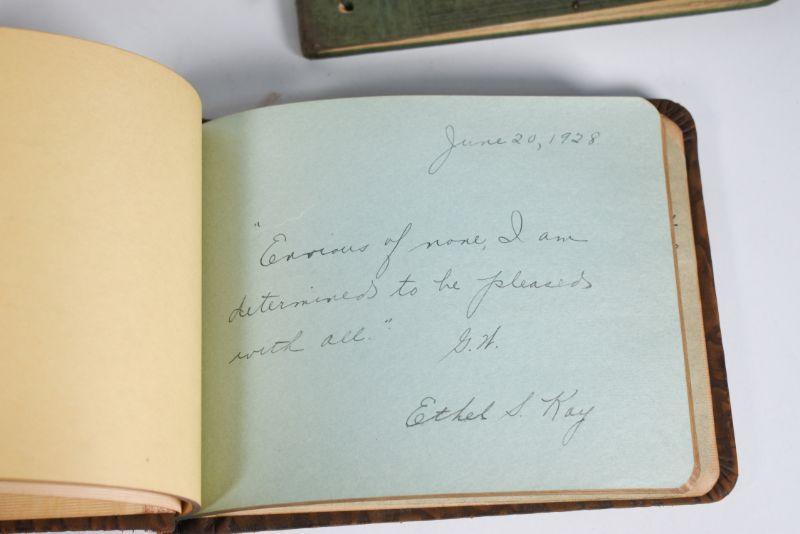 June 20, 1928
"Envious of none, I am
determined to be pleased
with all." G.W.
Ethel S. Kay